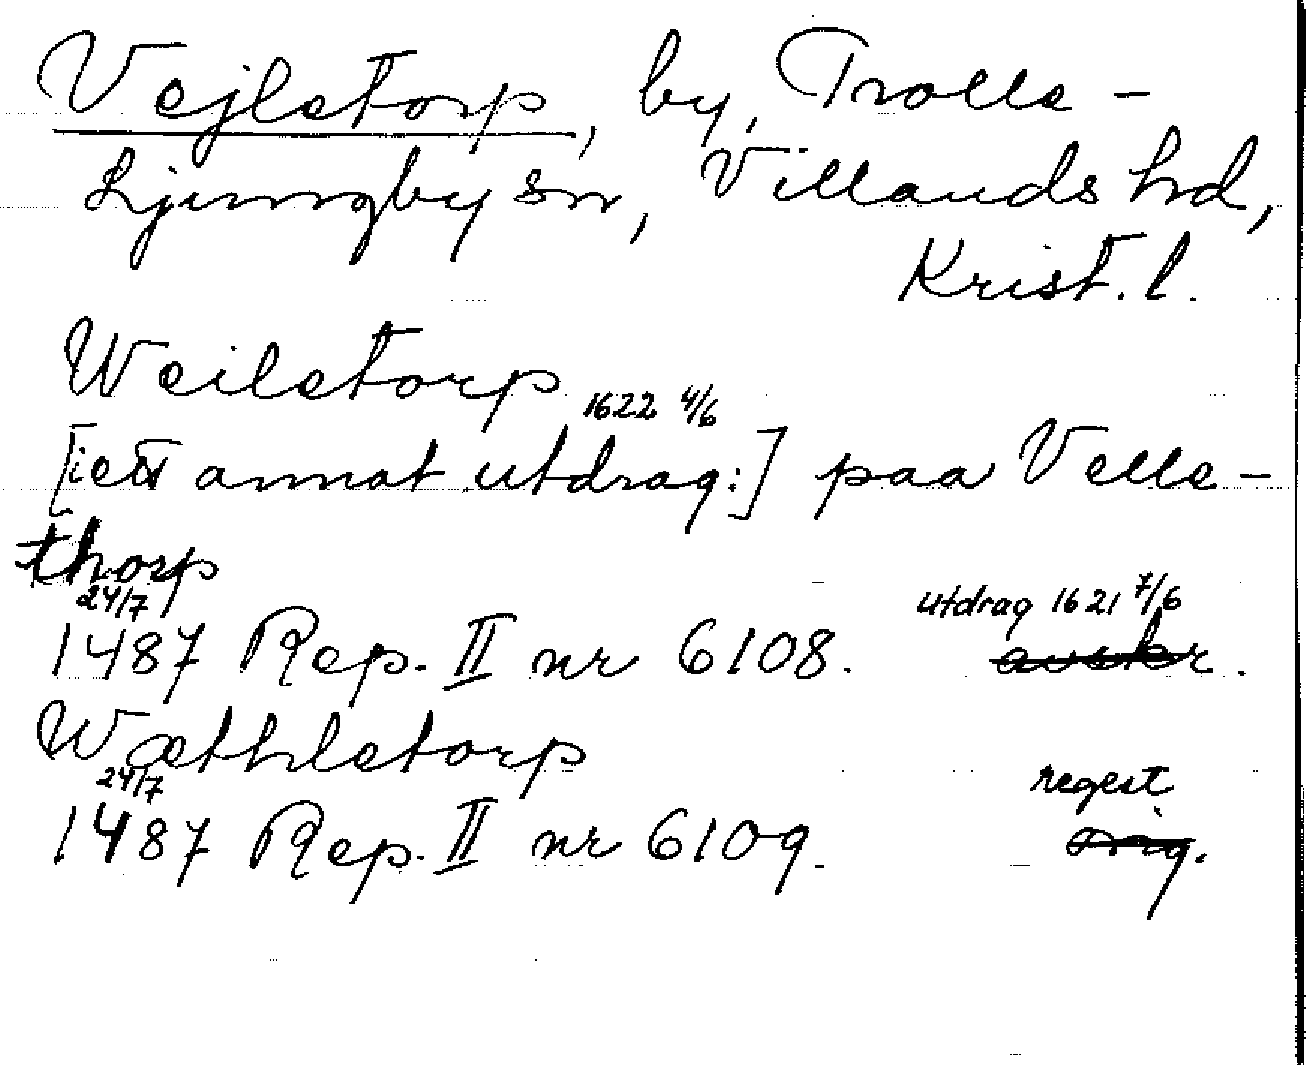 Vejletorp, by, Trolle-
Ljungby sn, Villands hd,
Krist. l.
Weiletorp
1622 4/6
[i ett annat utdrag:] paa Velle-
thorp
24/7
utdrag 1621 7/6
1487 Rep. II nr 6108. avskr.
Wæthletorp
24/7
regest
1487 Rep. II nr 6109. orig.